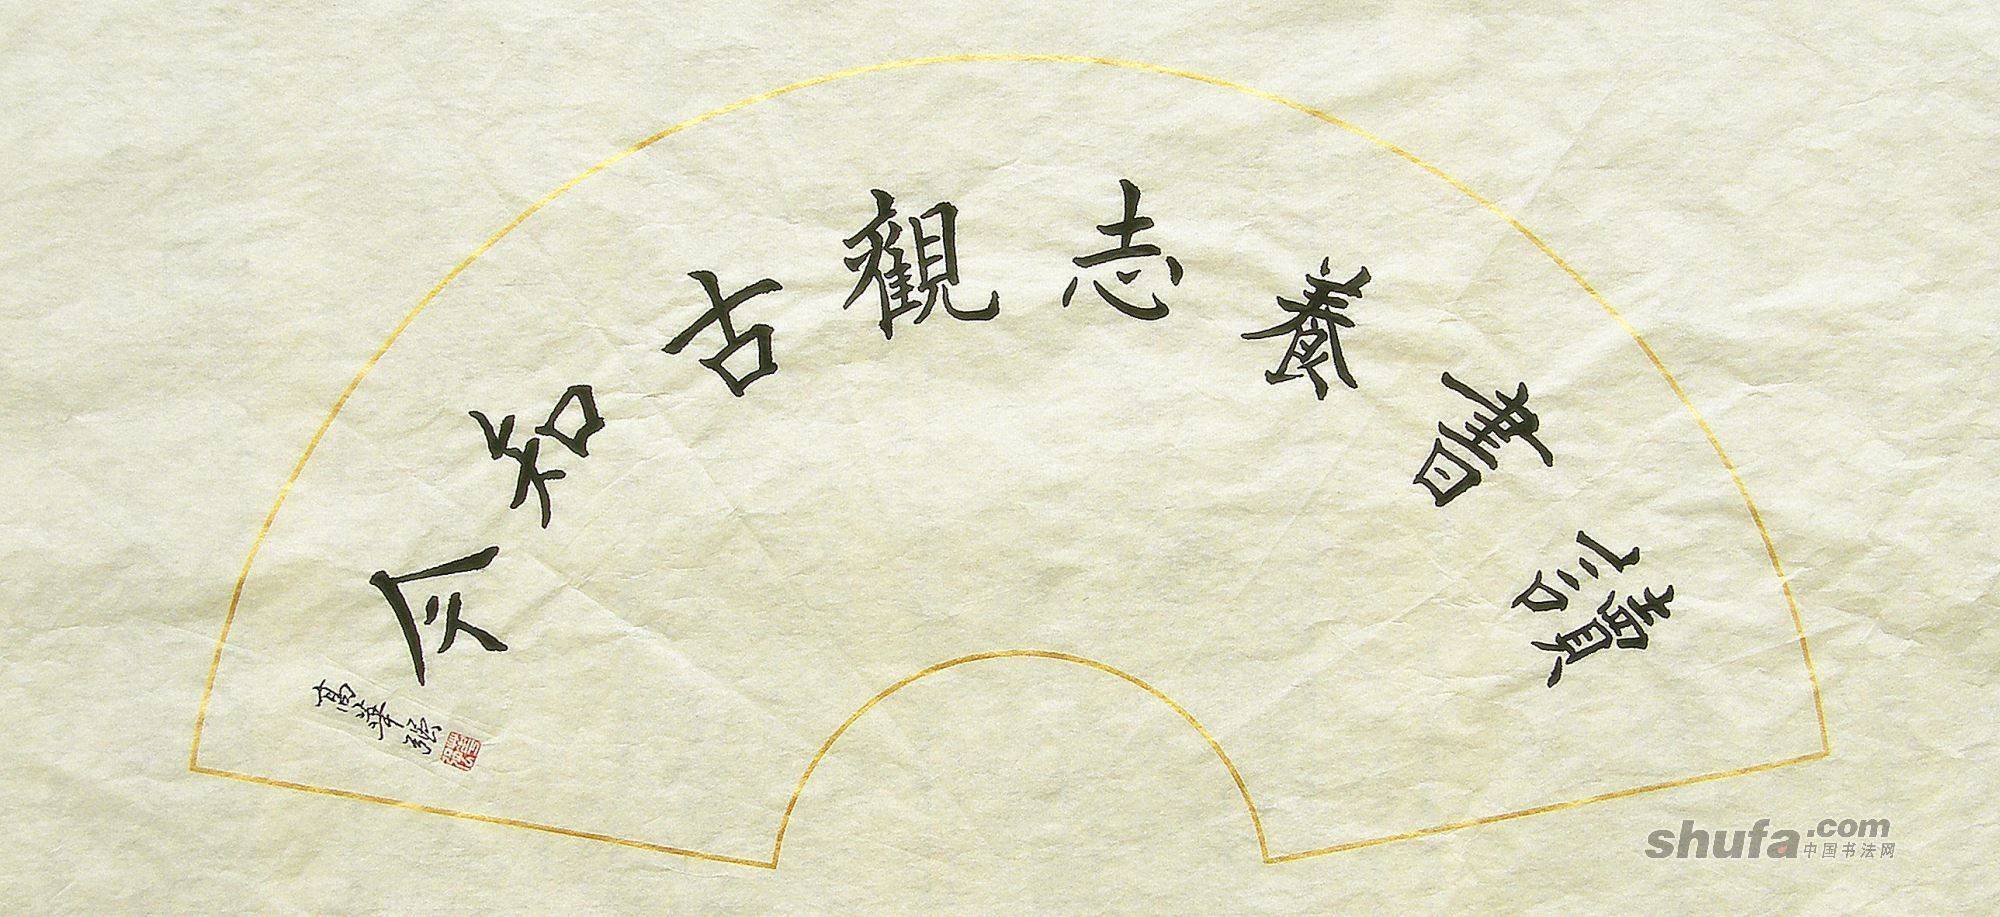 讀書養志觀古知今
高峰張
shufa.com
中国书法网